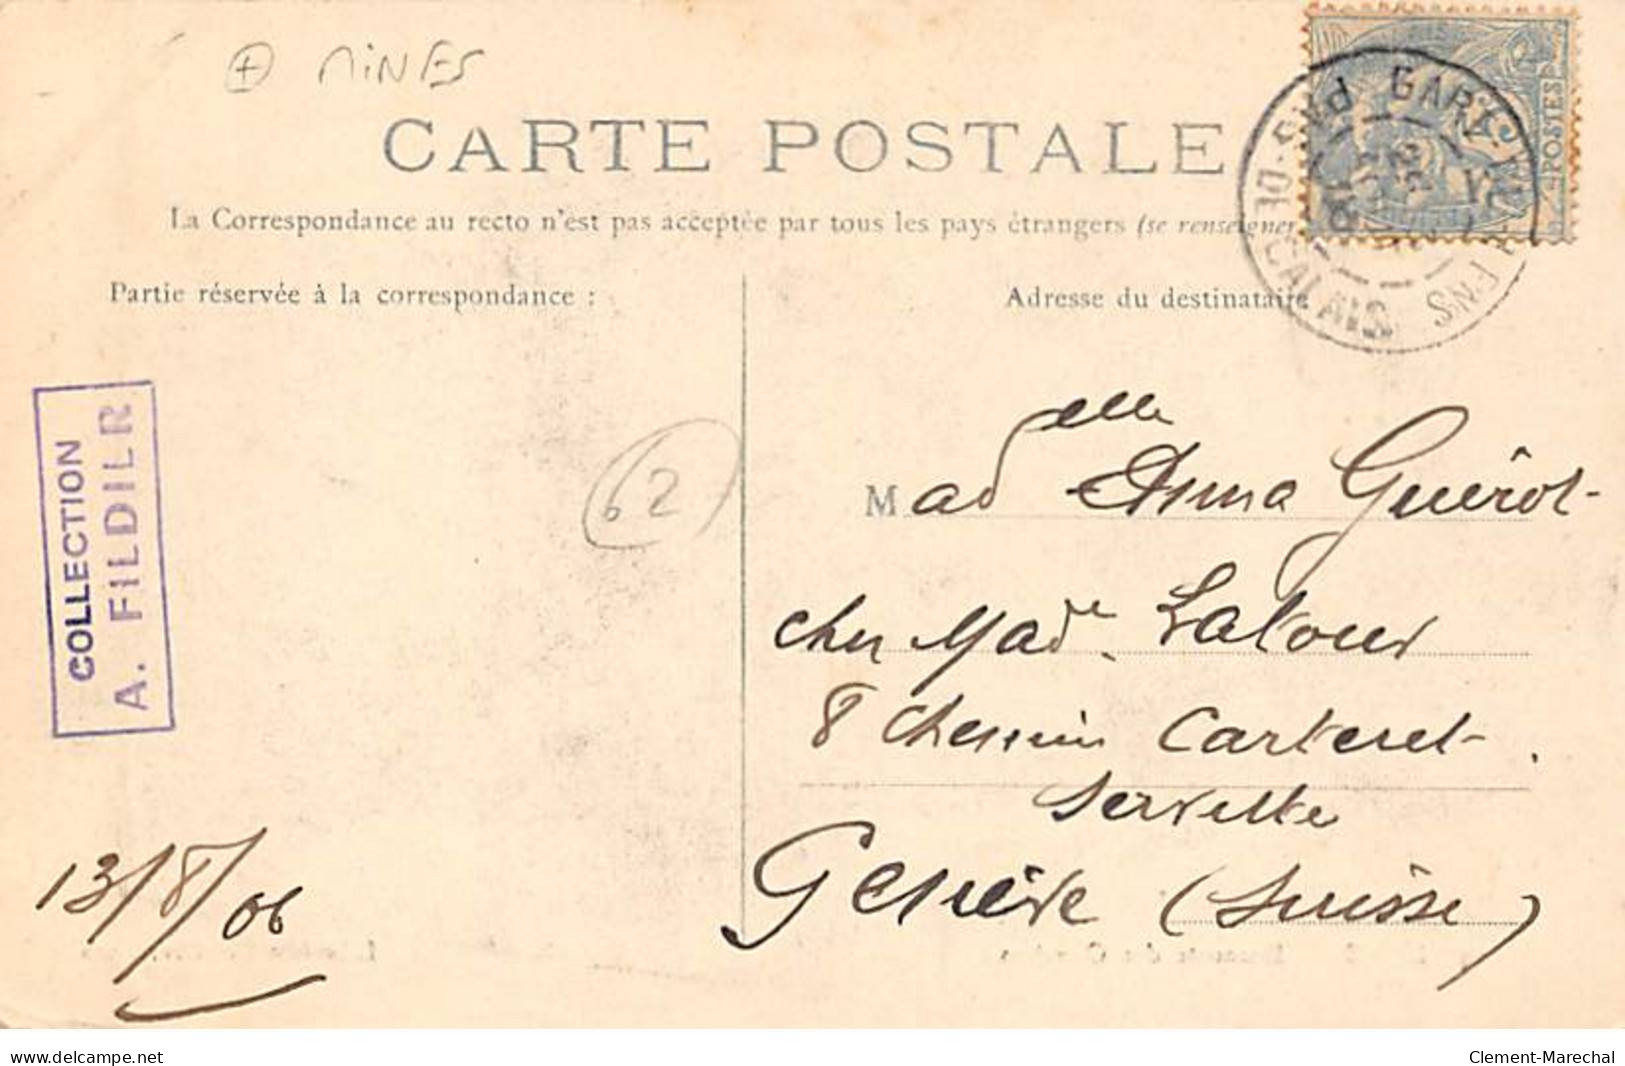 + MINES
CARTE POSTALE
La Correspondance au recto n'est pas acceptée par tous les pays étrangers (se renseigner
Partie réservée à la correspondance :
Adresse du destinataire
POSTES
GARE
PAS-DE-CALAIS
LENS
COLLECTION
A. FILDIER
62
Madelle Anna Guérot
chez Made Latour
8 chemin Carteret
Servette
Genève (Suisse)
13/8/06
www.delcampe.net
Clement-Marechal